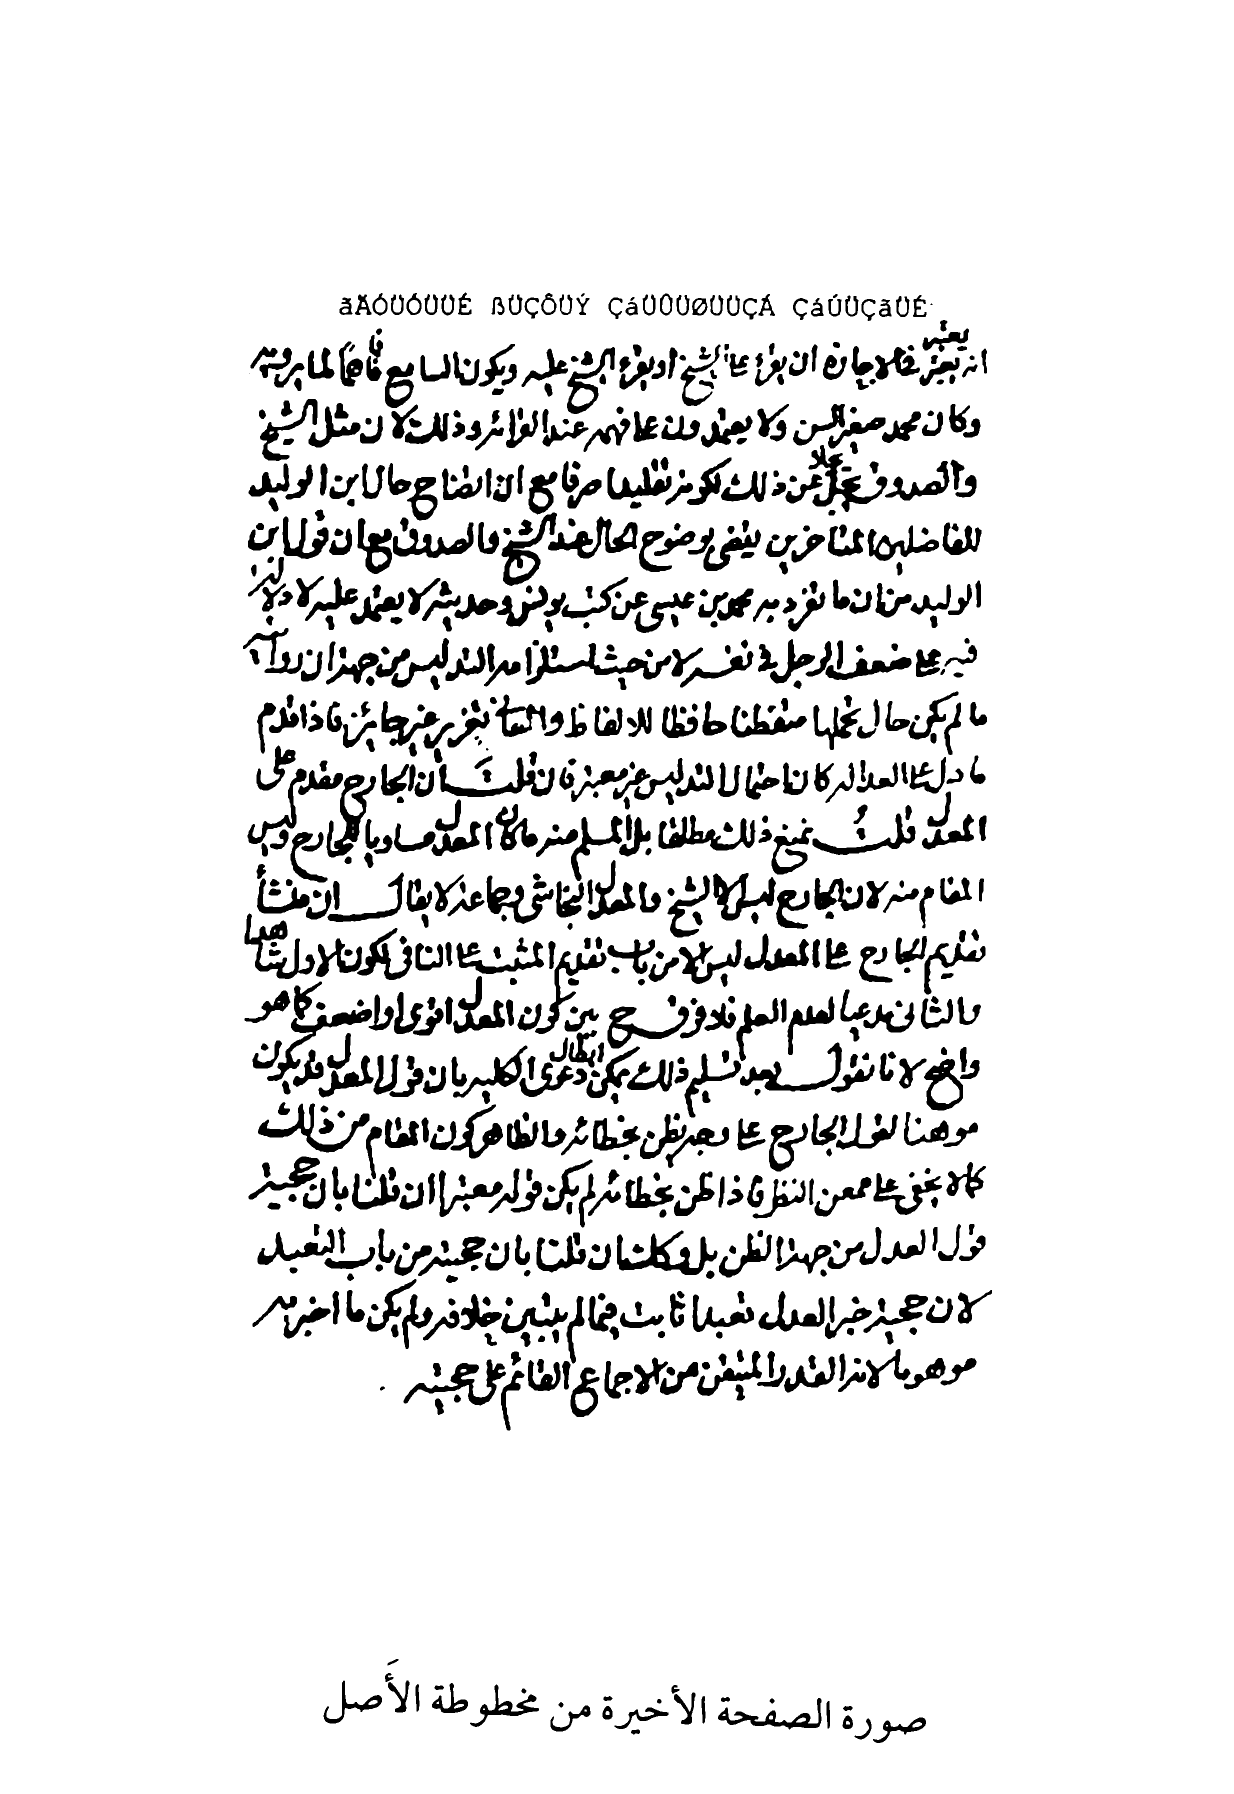 ãÄÓÜÓÜÜÉ ßÜÇÔÜÝ ÇáÜÛÜØÜÜÇÁ ÇáÚÜÇãÜÉ
يعتبر
انه يعتبر في الاجازة ان يقرأ على الشيخ او يقرء الشيخ عليه ويكون السامع فاهمًا لما يرويه
وكان محمد صغير السن ولا يعتمدون على فهمه عند القرائة وذلك لان مثل الشيخ
والصدوق عن ذلك لكونه تقليدا صرفا مع ان اتضاح حال ابن الوليد
للفاضلين المتاخرين يقضى بوضوح الحال عند الشيخ والصدوق مع ان قول ابن
الوليد من ان ما تفرد به محمد بن عيسى عن كتب يونس وحديثه لا يعتمد عليه لا دلالة
فيه على ضعف الرجل في نفسه لا من حيث استلزامه التدليس من جهة ان روايته
ما لم يكن حال تحملها متفطنا حافظا للالفاظ والمعاني تغزير غير جائز فاذا قدم
ما دل على العدالة كان احتمال التدليس غير معتبر فان قلت ان الجارح مقدم على
المعدل قلت نمنع ذلك مطلقا بل المسلم منه ما كان المعدل مساويا للجارح وليس
المقام منه لان الجارح ليس الا الشيخ والمعدل النجاشى وجماعة لا يقال ان منشأ
تقديم الجارح على المعدل ليس الا من باب تقديم المثبت على النافى لكون الاول شاهدا
والثانى مدعيا لعدم العلم فلا فرق ح بين كون المعدل اقوى او اضعف كما هو
واضح لا نا نقول بعد تسليم ذلك يمكن ابطال دعوى الكلية بان قول المعدل قد يكون
موهنا لقول الجارح على وجه يظن بخطائه والظاهر كون المقام من ذلك
كما لا يخفى على ممعن النظر فاذا ظن بخطائه لم يكن قوله معتبرا ان قلنا بان حجية
قول العدل من جهة الظن بل وكذا ان قلنا بان حجيته من باب التعبد
لان حجية خبر العدل تعبدا ثابت فيما لم يتبين خلافه ولم يكن ما اخبر به
موهوما لانه القدر المتيقن من الاجماع القائم على حجيته .
صورة الصفحة الأخيرة من مخطوطة الأَصل